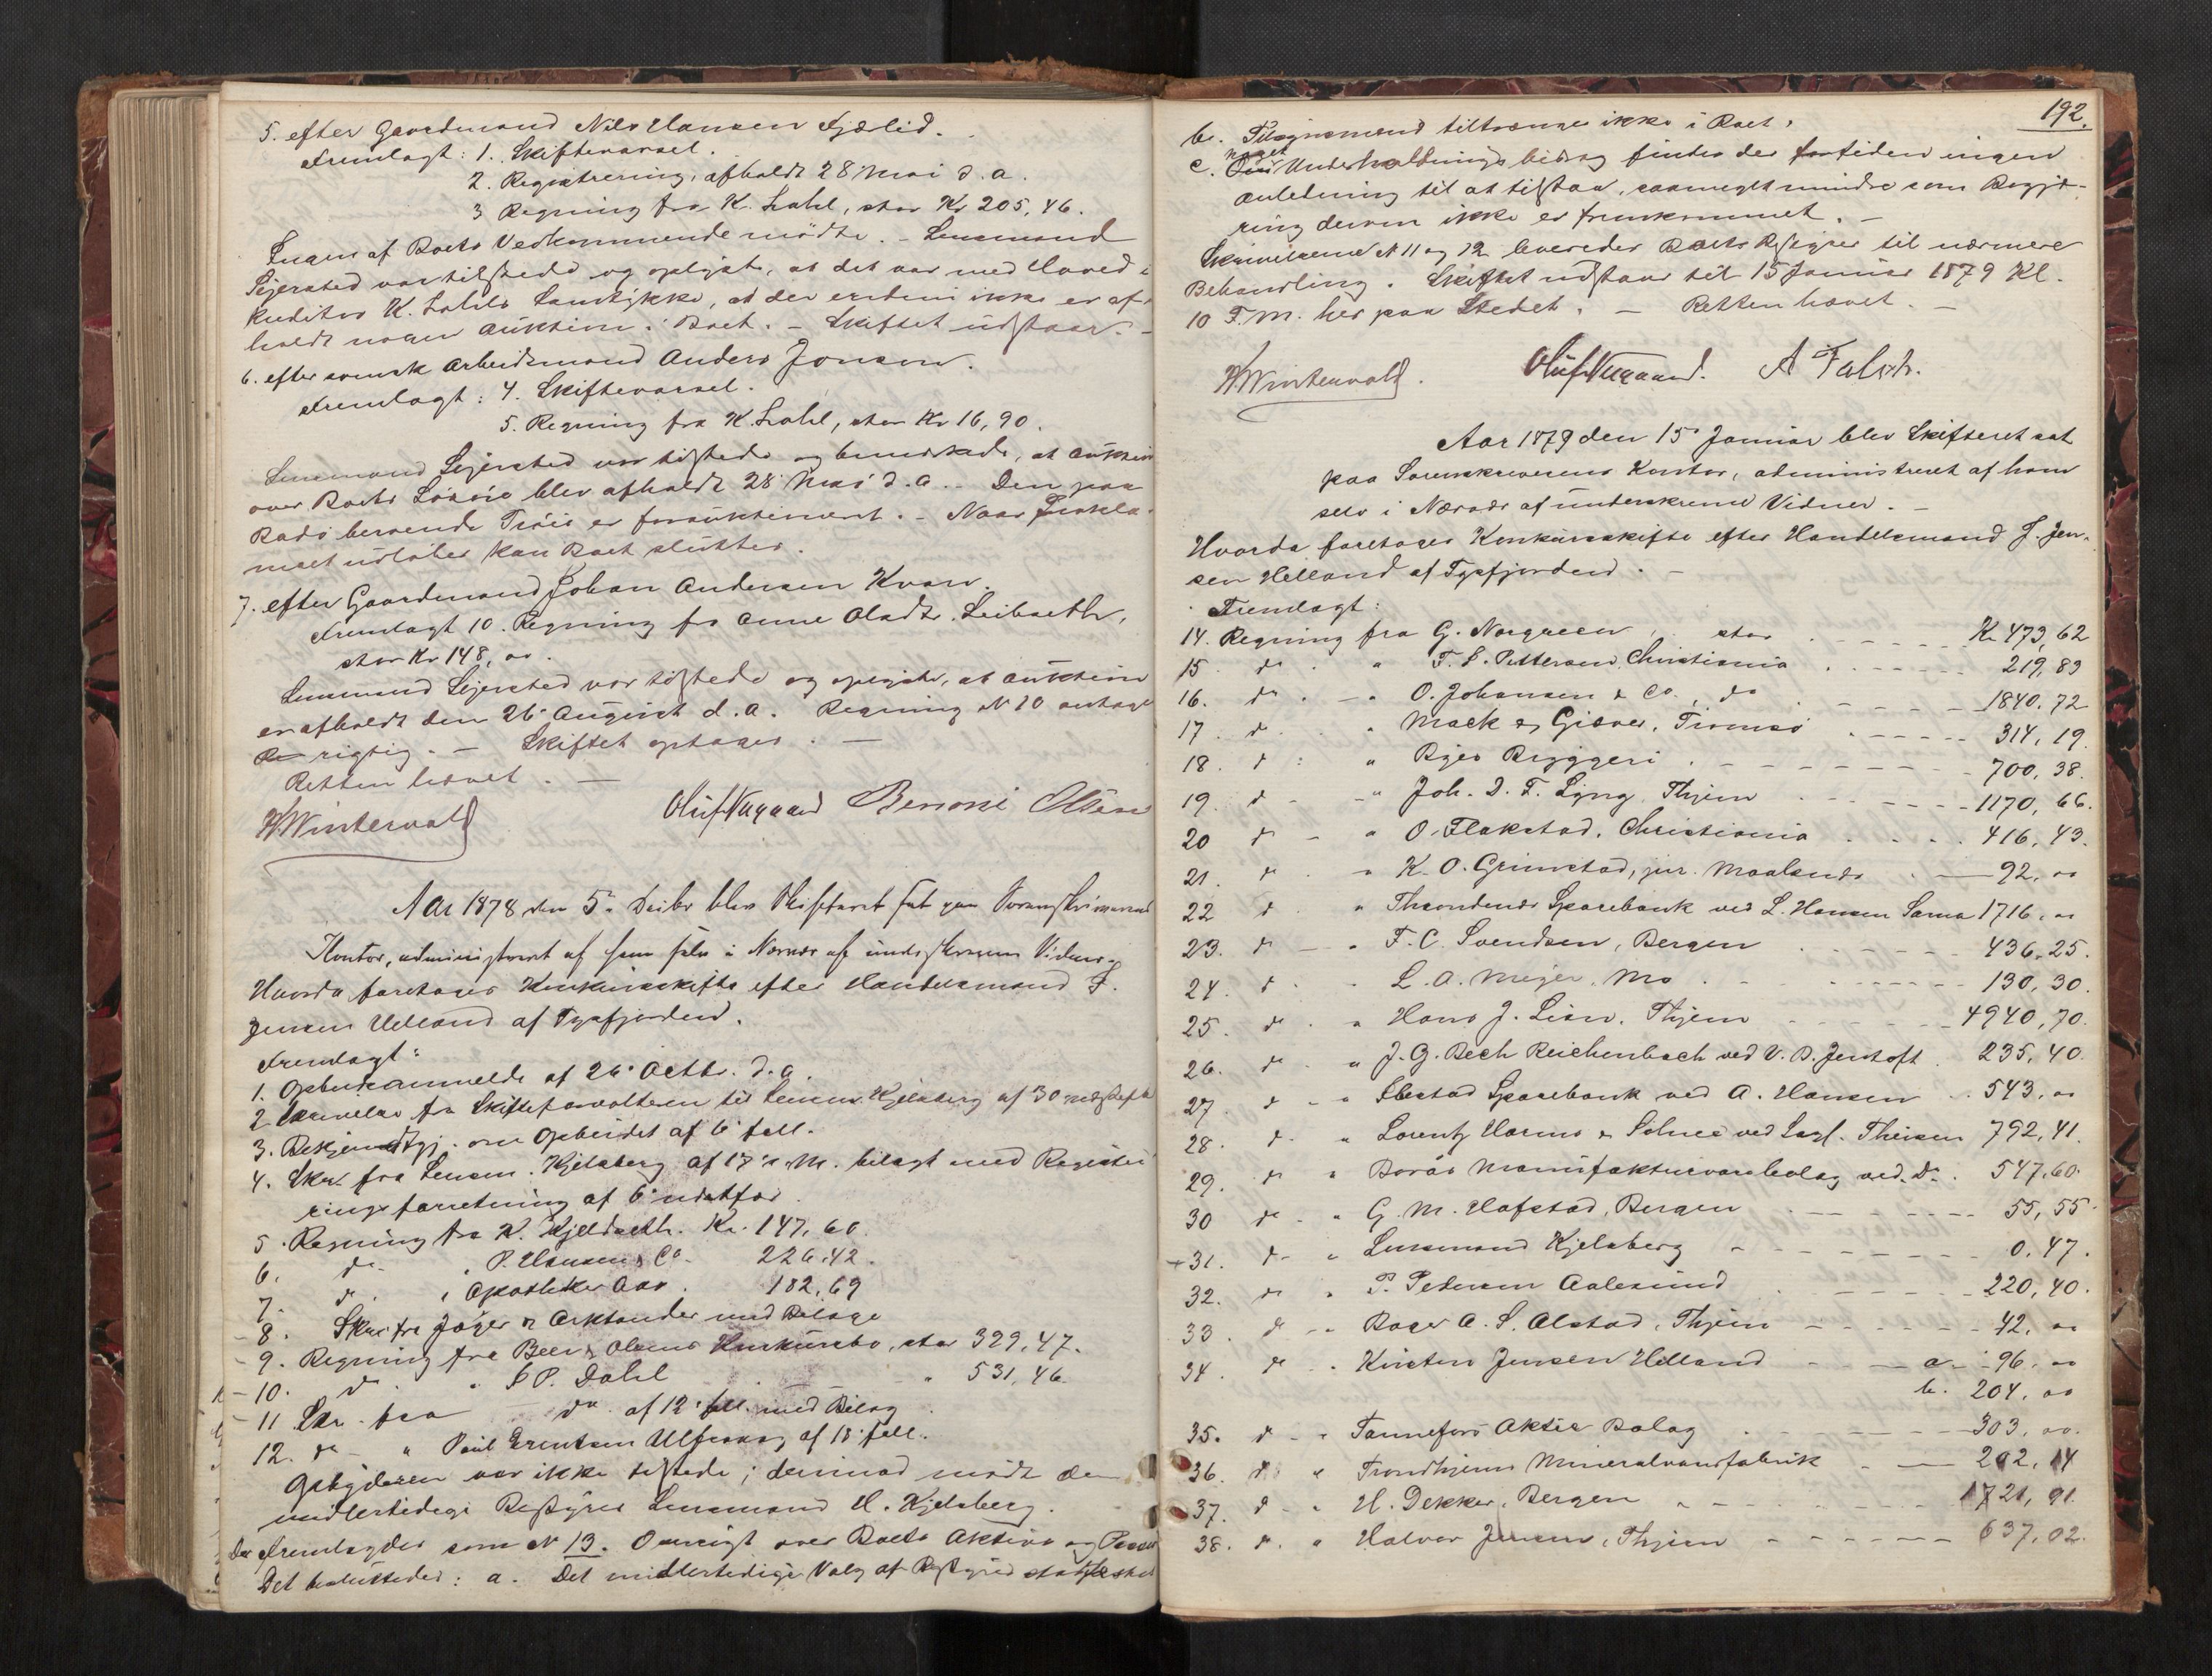 5. efter Gaardmand Nils Hansen Fjærlid.
Fremlagt: 1. Skiftevarsel.
2. Registrering, afholdt 28 Mai d. a.
3 Regning fra K. Zahl, stor Kr 205,46.
Ingen af Boets Vedkommende mødte. - Lensmand
Sejersted var tilstede og oplyste, at det var med Hoved-
kreditor K. Zahls Samtykke, at der endnu ikke er af-
holdt nogen Auktion i Boet. - Skiftet udstaar. -
6. efter svensk Arbeidsmand Anders Jonsen.
Fremlagt: 4. Skiftevarsel.
5. Regning fra K. Zahl, stor Kr 16,90.
Lensmand Sejersted var tilstede og bemærkede, at Auktion
over Boets Løsøre blev afholdt 28 Mai d. a. - Den paa
Bodø beroende er forauktioneret. - Naar Prokla-
maet udløber kan Boet sluttes.
7. efter Gaardmand Johan Andersen Kvarv.
Fremlagt 10. Regning fra Anne Olsdtr. Leibaeth,
stor Kr 148, oo.
Lensmand Sejersted var tilstede og oplyste, at Auktion
er afholdt den 26de August d. a. Regning N 10 antages
rigtig. - Skiftet optages. -
Retten hævet. -
H. Wintervold Oluf Nygaard Benoni Olsen
Aar 1878 den 5te Decbr blev Skifteret sat paa Sorenskriverens
Kontor, administreret af ham selv i Nærvær af underskrevne Vidner.
Hvorda foretages Konkursskifte efter Handelsmand J.
Jensen Helland af Tysfjorden.
Fremlagt:
1. Opbudsanmeldelse af 26de Octbr. d. a.
2. Skrivelse fra Skifteforvalteren til Lensm. Kjelsberg af 30 næstefter
3. Bekjendtgj. om Opbudet af 6te f. M.
4. Skr. fra Lensm. Kjelsberg af 17de s. M. bilagt med Registre-
ringsforretning af 6te næstfør.
5. Regning fra K. Kjeldseth. Kr. 147,60.
6. do " P. Hansen & Co. 226,42.
7. do " Apotheker Aas. 182,69
8. Skr. fra Jæger & Arktander med Bilage
9. Regning fra Beer & Olsens Konkursbo, stor 329,47.
10. do " P. Dahl - " 531,46.
11 Skr. fra do af 12te f. M. med Bilag
12. do " Paul Arentsen Ulfsvaag af 18de f. M.
Opbyderen var ikke tilstede; derimod mødte den
midlertidige Bestyrer Lensmand H. Kjelsberg.
Der Fremlagdes som N 13. Oversigt over Boets Aktiva og Passiva
Det besluttedes: a. Det midlertidige Valg af Bestyrer stadfæstes
192.
b. Tilsynsmænd tiltrænges ikke i Boet.
c. noget Underholdningsbidrag findes der for tiden ingen
Anledning til at tilstaa, saameget mindre som Begjæ-
ring derom ikke er fremkommet. -
Skrivelserne N 11 og 12 leveredes Boets Bestyrer til nærmere
Behandling. Skiftet udstaar til 15 Januar 1879 Kl.
10 F. M. her paa Stedet. - Retten hævet. -
H. Wintervold. Oluf Nygaard. A Falch.
Aar 1879 den 15de Januar blev Skifteret sat
paa Sorenskriverens Kontor, administreret af ham
selv i Nærvær af underskrevne Vidner. -
Hvorda foretages Konkursskifte efter Handelsmand J. Jen-
sen Helland af Tysfjorden. -
Fremlagt:
14. Regning fra G. Norgreen, stor Kr 473,62
15 do " T. L. Pettersen, Christiania 219,83
16. do " O. Johansen & Co., do 1840.72
17. do " Mack & Giæver, Tromsø 314,19.
18. do " Byes Bryggeri 700,38.
19. do " Joh. D. F. Lyng, Thjem 1170,66.
20 do " O. Flakstad, Christiania 416,43.
21. do " K. O. Grimstad, jnr. Maalsnes 92, oo
22 do " Throndenæs Sparebank ved L. Hansen Sama 1716, oo
23. do " F. C. Svendsen, Bergen 436,25.
24. do " L. A. Mejer, Mo 130,30.
25. do " Hans J. Lien, Thjem 4940,70.
26. do " J. G. Bech Reichenbach ved V. B. Jentoft 235,40
27. do " Ibestad Sparebank ved A. Hansen 543, oo
28. do " Lorentz Harms & Söhne ved Sagf. Theisen 792,41.
29. do " Borås Manufakturvarebolag ved do. 547,60.
30 do " G. M. Hafstad, Bergen 55,55
31. do " Lensmand Kjelsberg 0,47.
32. do " P. Pedersen Aalesund 220,40.
33. do " Bager A. S. Alstad, Thjem 42, oo
34 do " Kirsten Jensen Helland a. 96, oo
b. 204, oo
35. do " Tannefors Aktie Bolag 303, oo.
36. do " Trondhjems Mineralvandfabrik 202,14
37. do " H. Dekker, Bergen 1721,91.
38. do " Halvor Jensen, Thjem 637,02.